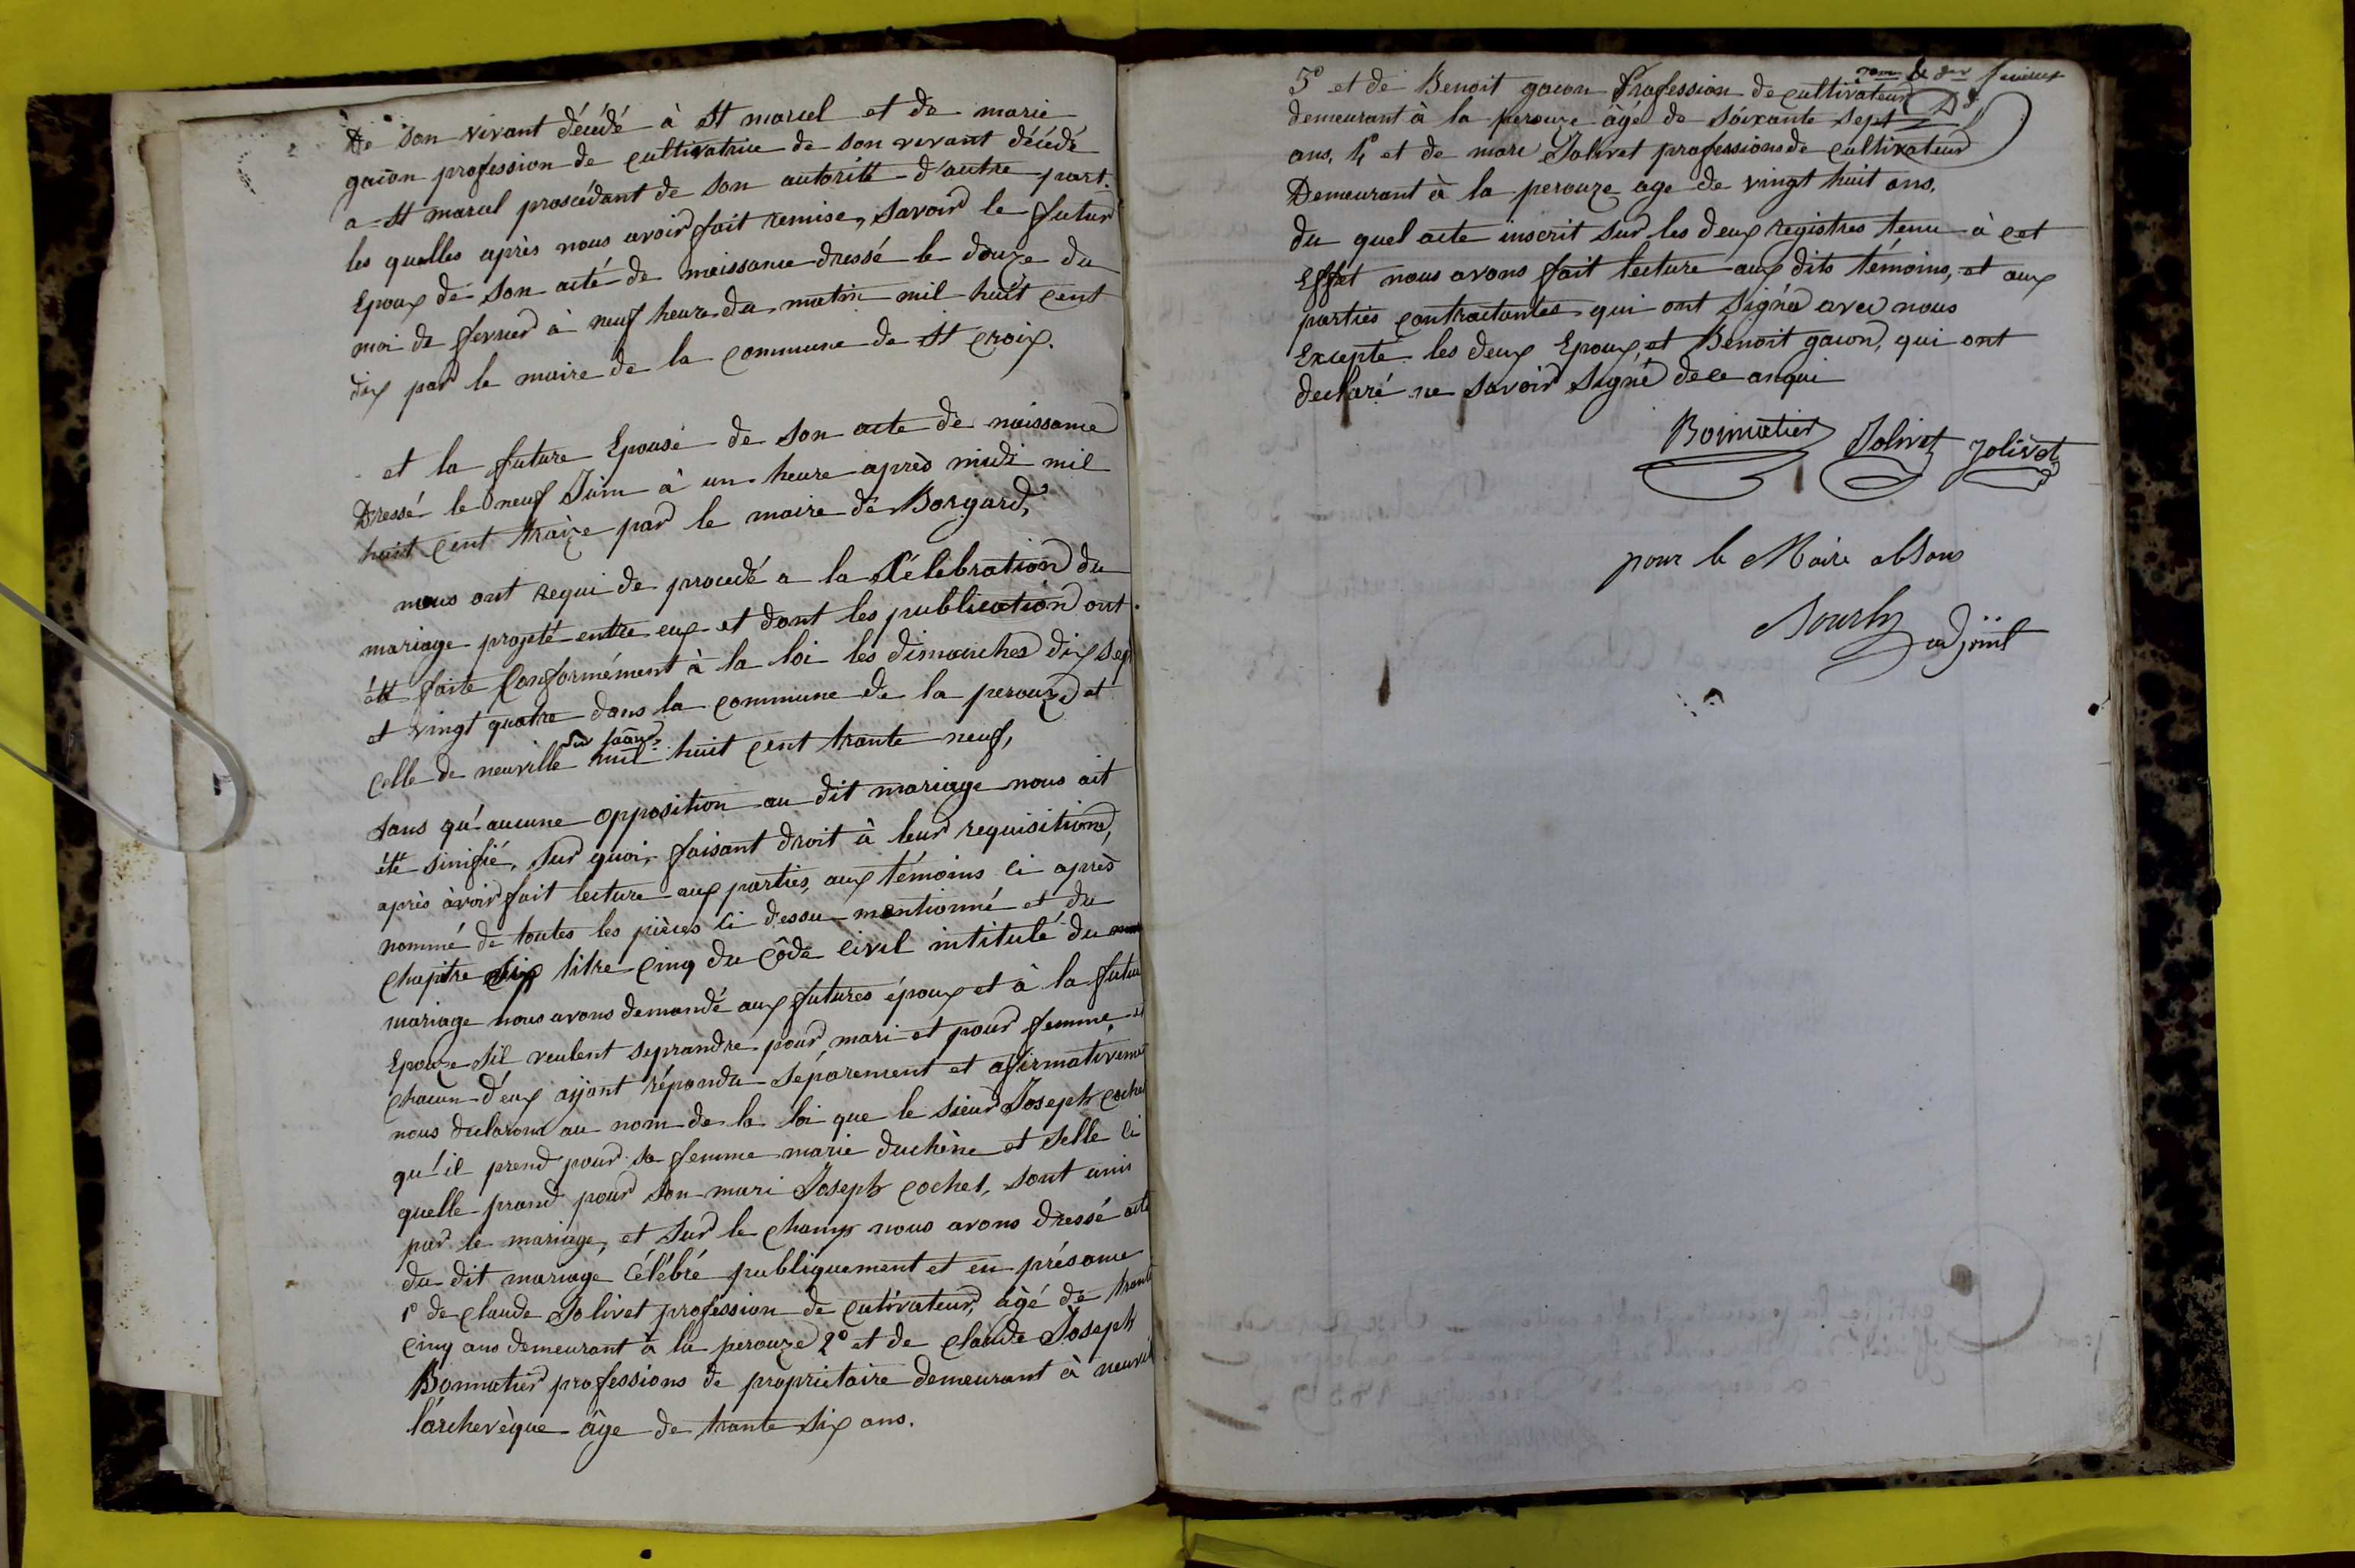 De son vivant décédé à St marcel et de marie
gacon profession de cultivatrice de son vivant décédé
a St marcel proscédant de son autorité d'autre part.
les quelles après nous avoir fait remise, savoir le futur
Epoux de son acté de naissance dressé le douze du
moi de fevrier à neuf heure du matin mil huit cent
dix par le maire de la commune de St Croix.
et la future Epouse de son acte de naissance
Dressé le neuf Juin à un heure après midi mil
huit cent traize par le maire de Borgard,
nous ont requi de procedé a la Célébration du
mariage projeté entre eux et dont les publication ont
été faite Conformément à la loi les dimanches dix sept
et vingt quatre dans la commune de la perouze et
Celle de neuville mil huit cent trante neuf,
sans qu'aucune opposition au dit mariage nous ait
été sinifié, sur quoi, faisant droit à leur requisitiond,
après àvoir fait lecture aux parties, aux témoins ci après
nommé de toutes les pièces ci dessu mentionné et du
Chapitre six titre cinq du Côde Civil intitulé du
mariage nous avons demandé aux futures époux et à la futur
Epouze s'il veulent seprandre pour mari et pour femme, et
chacun d'eux ayant répondu séparement et afirmativement
nous declarons au nom de la loi que le sieur Joseph cochet
qu'il prend pour sa femme marie duchène et selle ci
quelle prand pour son mari Joseph cochet, sont unis
par le mariage, et sur le champs nous avons dressé acte
du dit mariage Célébré publiquement et en présance
1º de Claude Jolivet profession de cutivateur, âgé de trante
Cinq ans demeurant à la perouze 2º et de Claude Joseph
Bonnatier professions de propriètaire demeurant à neuvil
l'archevèque âge de trante six ans.
3º et de Benoit gacon Profession de cultivateur
demeurant à la perouze âgé de sóixante sept
ans, 4º et de marc Jolivet professions de Cultivateur
Demeurant à la perouze age de vingt huit ans.
du quel acte inscrit sur les deux registres tenu à cet
Effet nous avons fait lecture aux dits témoins, et aux
parties contractantes qui ont signé avec nous
Excepté les deux Epoux, et Benoit gacon, qui ont
declaré ne savoir signé de ce anqui
Bonnatier Jolivet Jolivet
pour le Maire absens
adjoint